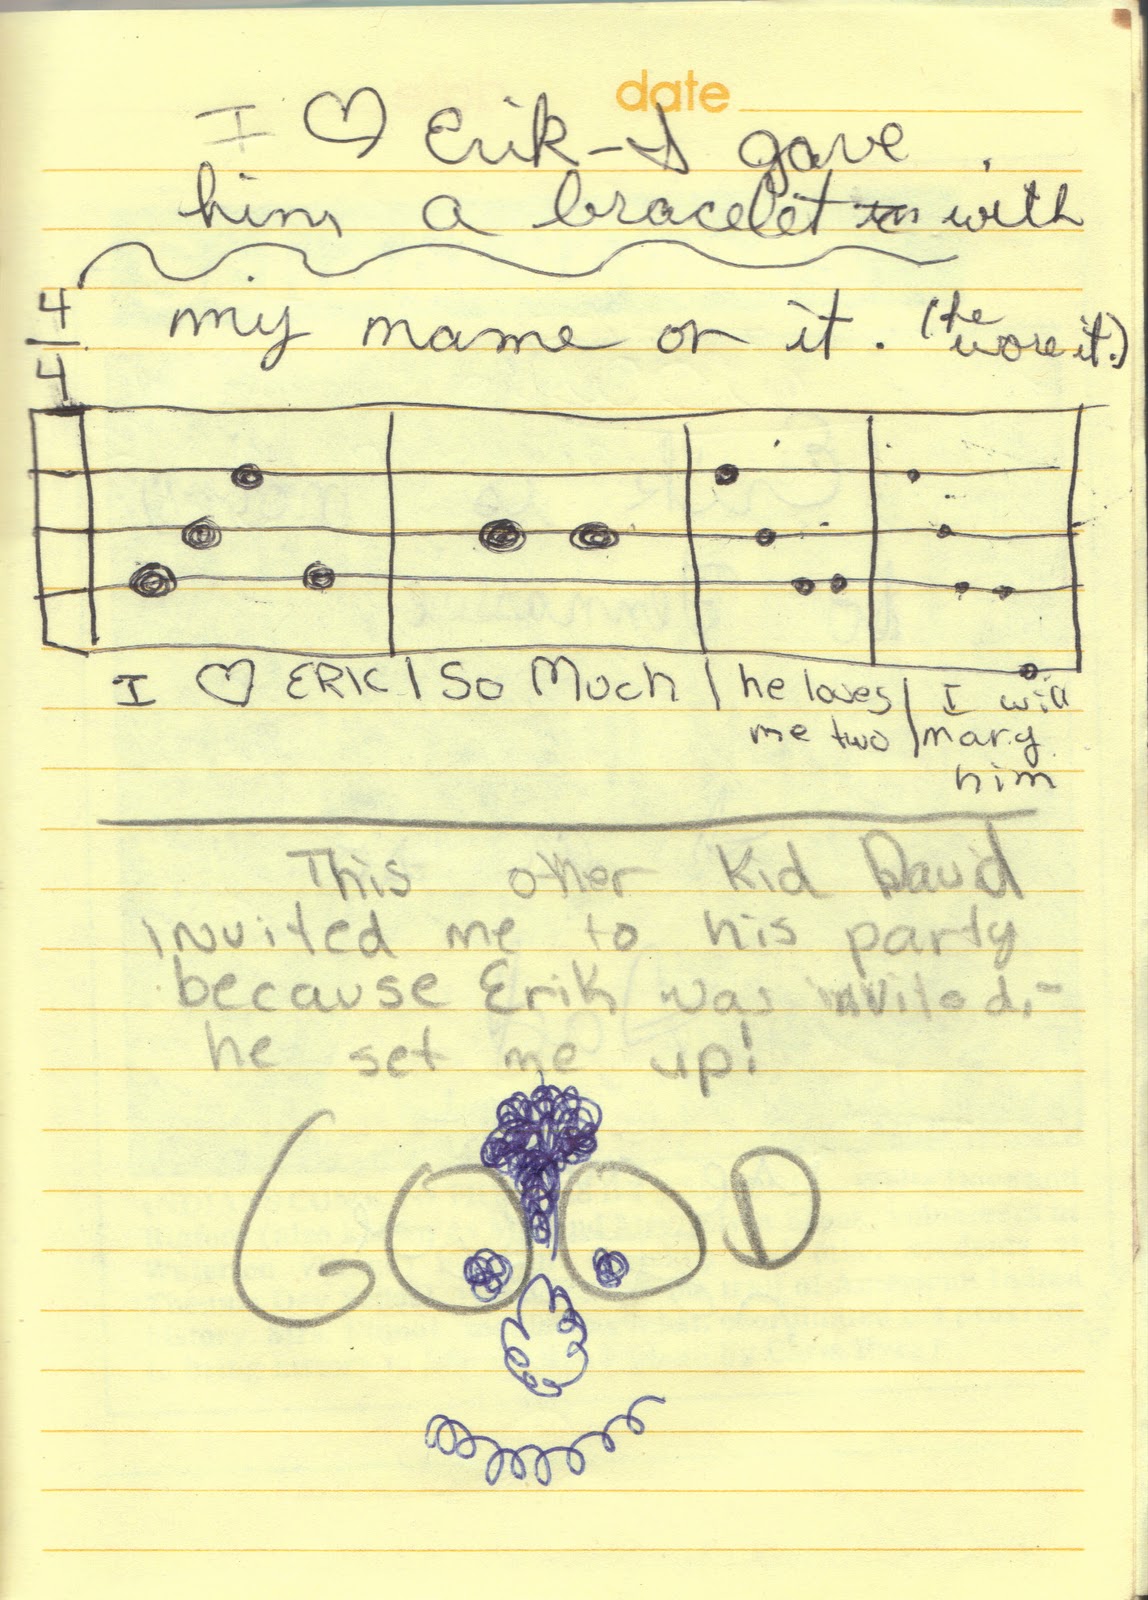 date
I ♡ Erik - I gave
him a bracelet with
my name on it. (he
wore it.)
4
4
I ♡ ERIK | So Much | he loves | I will
me two | marry
him
This other Kid David
invited me to his party
because Erik was invited, -
he set me up!
GOOD